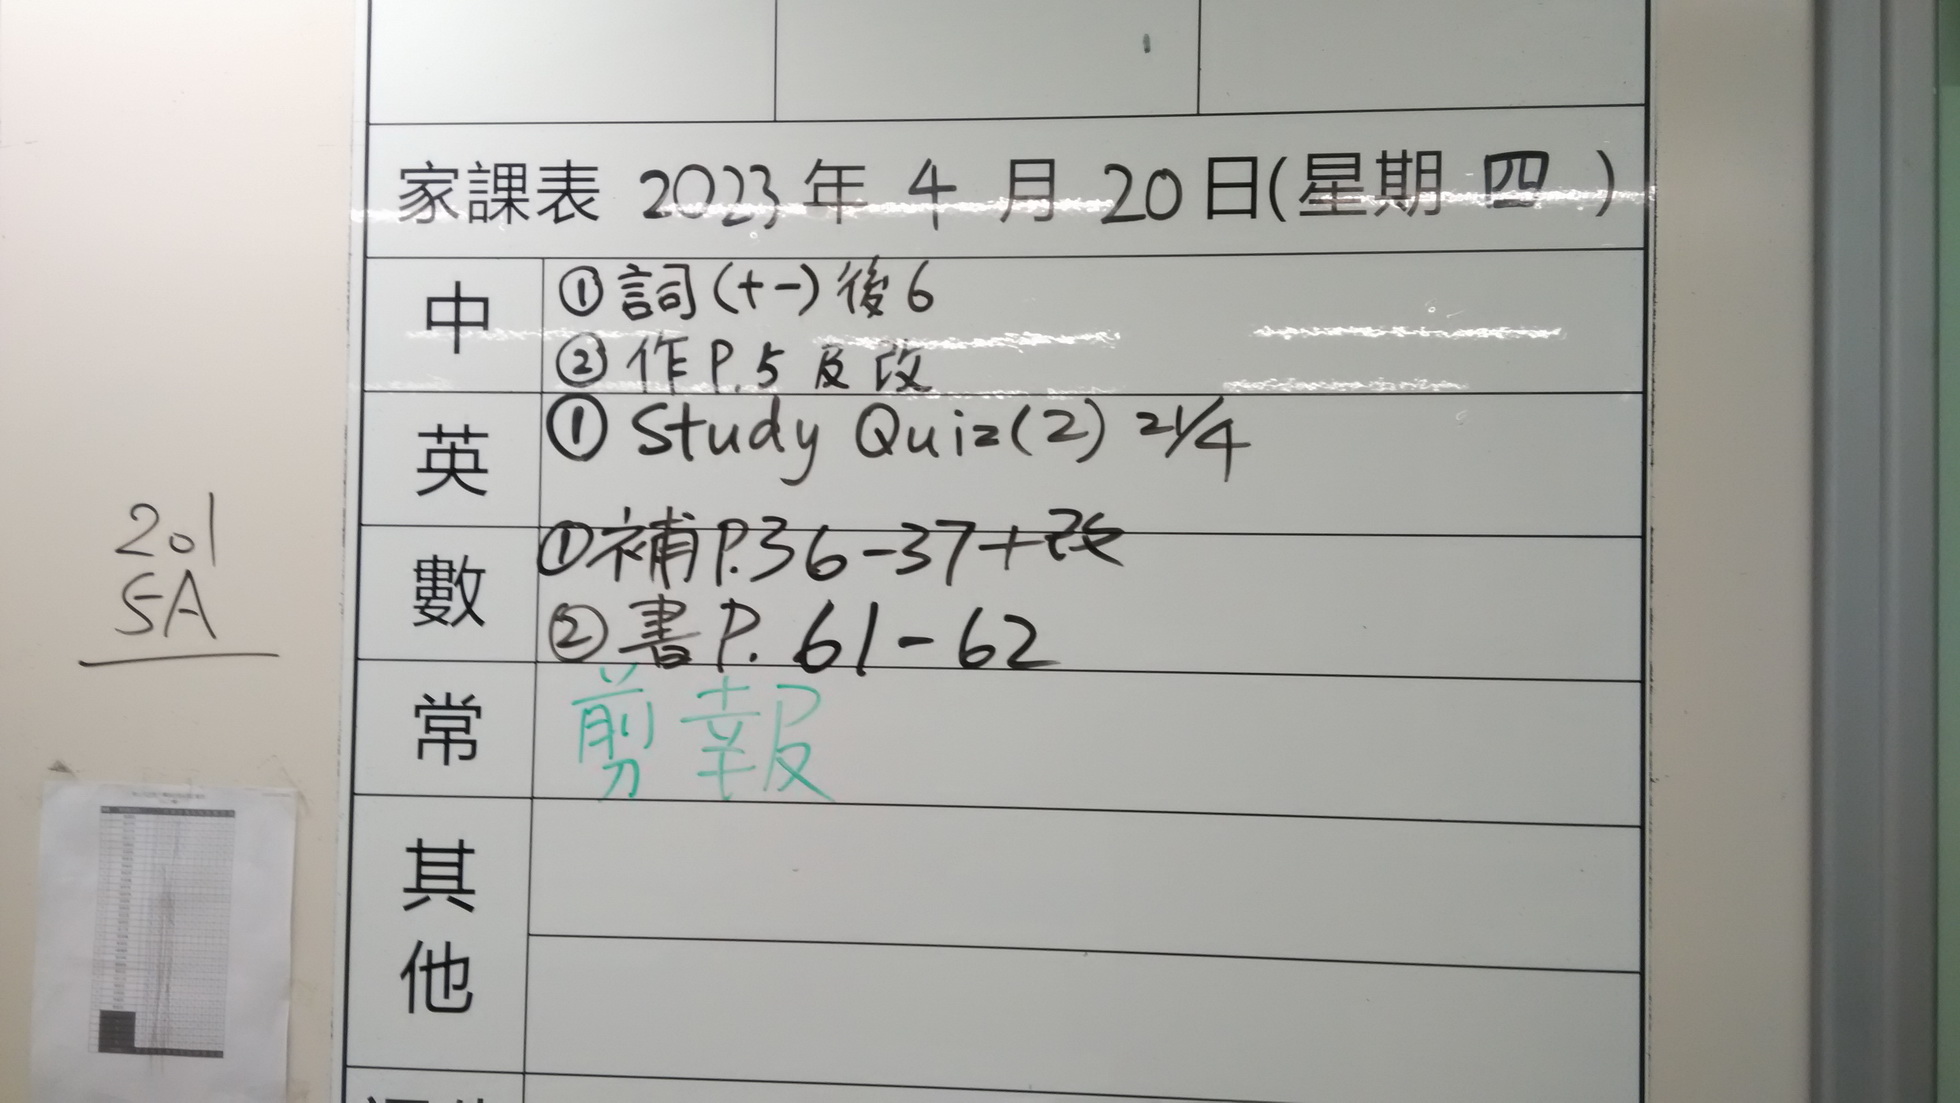 家課表 2023年 4 月 20日(星期 四 )
中
①詞(十一)後6
②作P.5及改
英
① Study Quiz(2) 21/4
數
①補P.36-37+改
②書P. 61-62
常
剪報
其他
201
5A